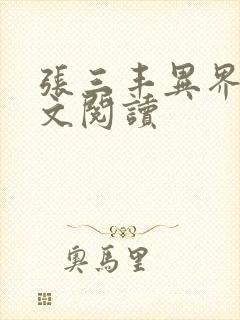 張三丰異界
文閱讀
奧馬里